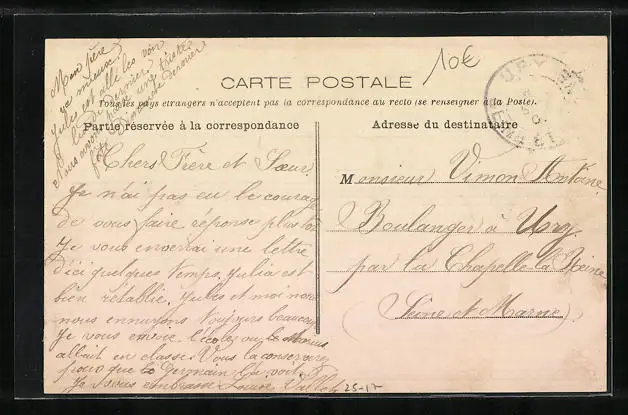 Mon père
va mieux
Jules est allé les voir
Dimanche dernier
10€
CARTE POSTALE
Tous les pays etrangers n'acceptent pas la correspondance au recto (se renseigner à la Poste).
Partie réservée à la correspondance
Adresse du destinataire
URY
Chers Frère et Sœur
Je n'ai pas eu le courage
de vous faire réponse plus tôt
Je vous enverrai une lettre
d'ici quelques temps. Julia est
bien rétablie. Jules et moi nous
nous ennuyons toujours beaucoup
Je vous envoie l'école ou le Marius
allait en classe. Vous la conserverez
pour que le Germain la voit
Je vous embrasse Louise
25-17
Monsieur Vimon Antoine
Boulanger à Ury
par la Chapelle la Reine
(Seine et Marne)